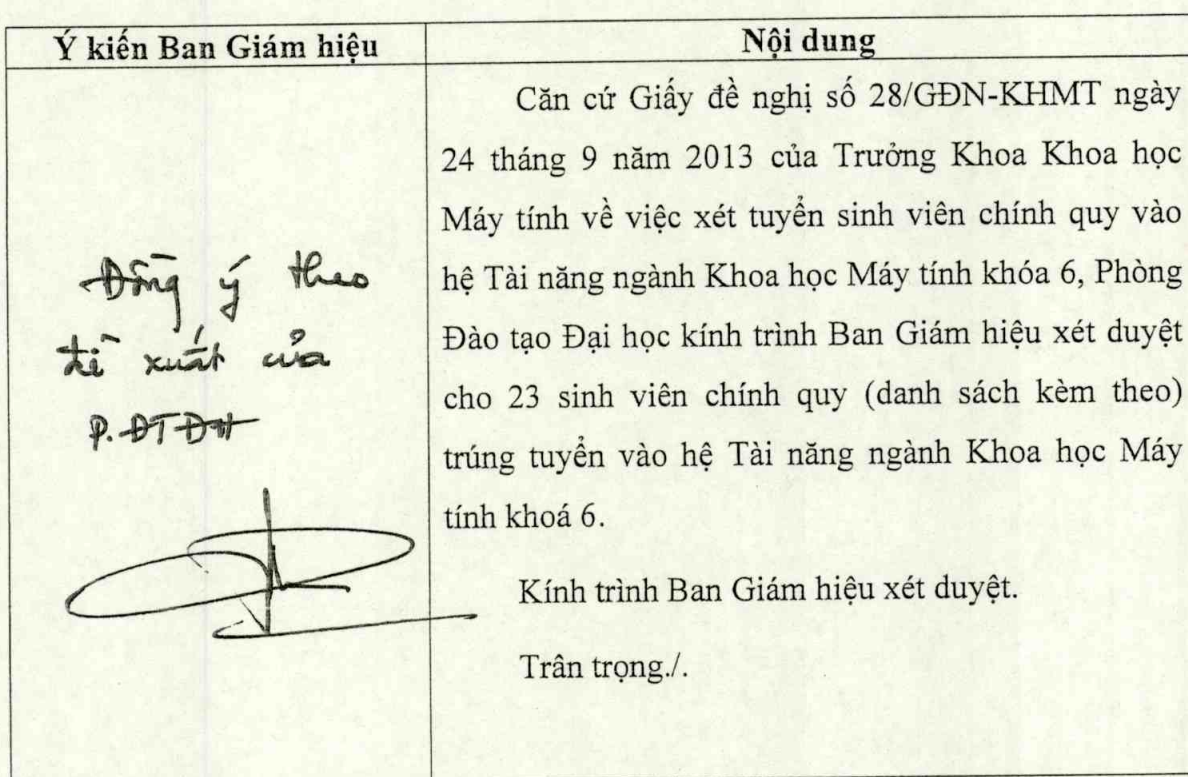 Ý kiến Ban Giám hiệu
Nội dung
Đồng ý theo
đề xuất của
P. ĐTĐH
Căn cứ Giấy đề nghị số 28/GĐN-KHMT ngày
24 tháng 9 năm 2013 của Trưởng Khoa Khoa học
Máy tính về việc xét tuyển sinh viên chính quy vào
hệ Tài năng ngành Khoa học Máy tính khóa 6, Phòng
Đào tạo Đại học kính trình Ban Giám hiệu xét duyệt
cho 23 sinh viên chính quy (danh sách kèm theo)
trúng tuyển vào hệ Tài năng ngành Khoa học Máy
tính khoá 6.
Kính trình Ban Giám hiệu xét duyệt.
Trân trọng./.